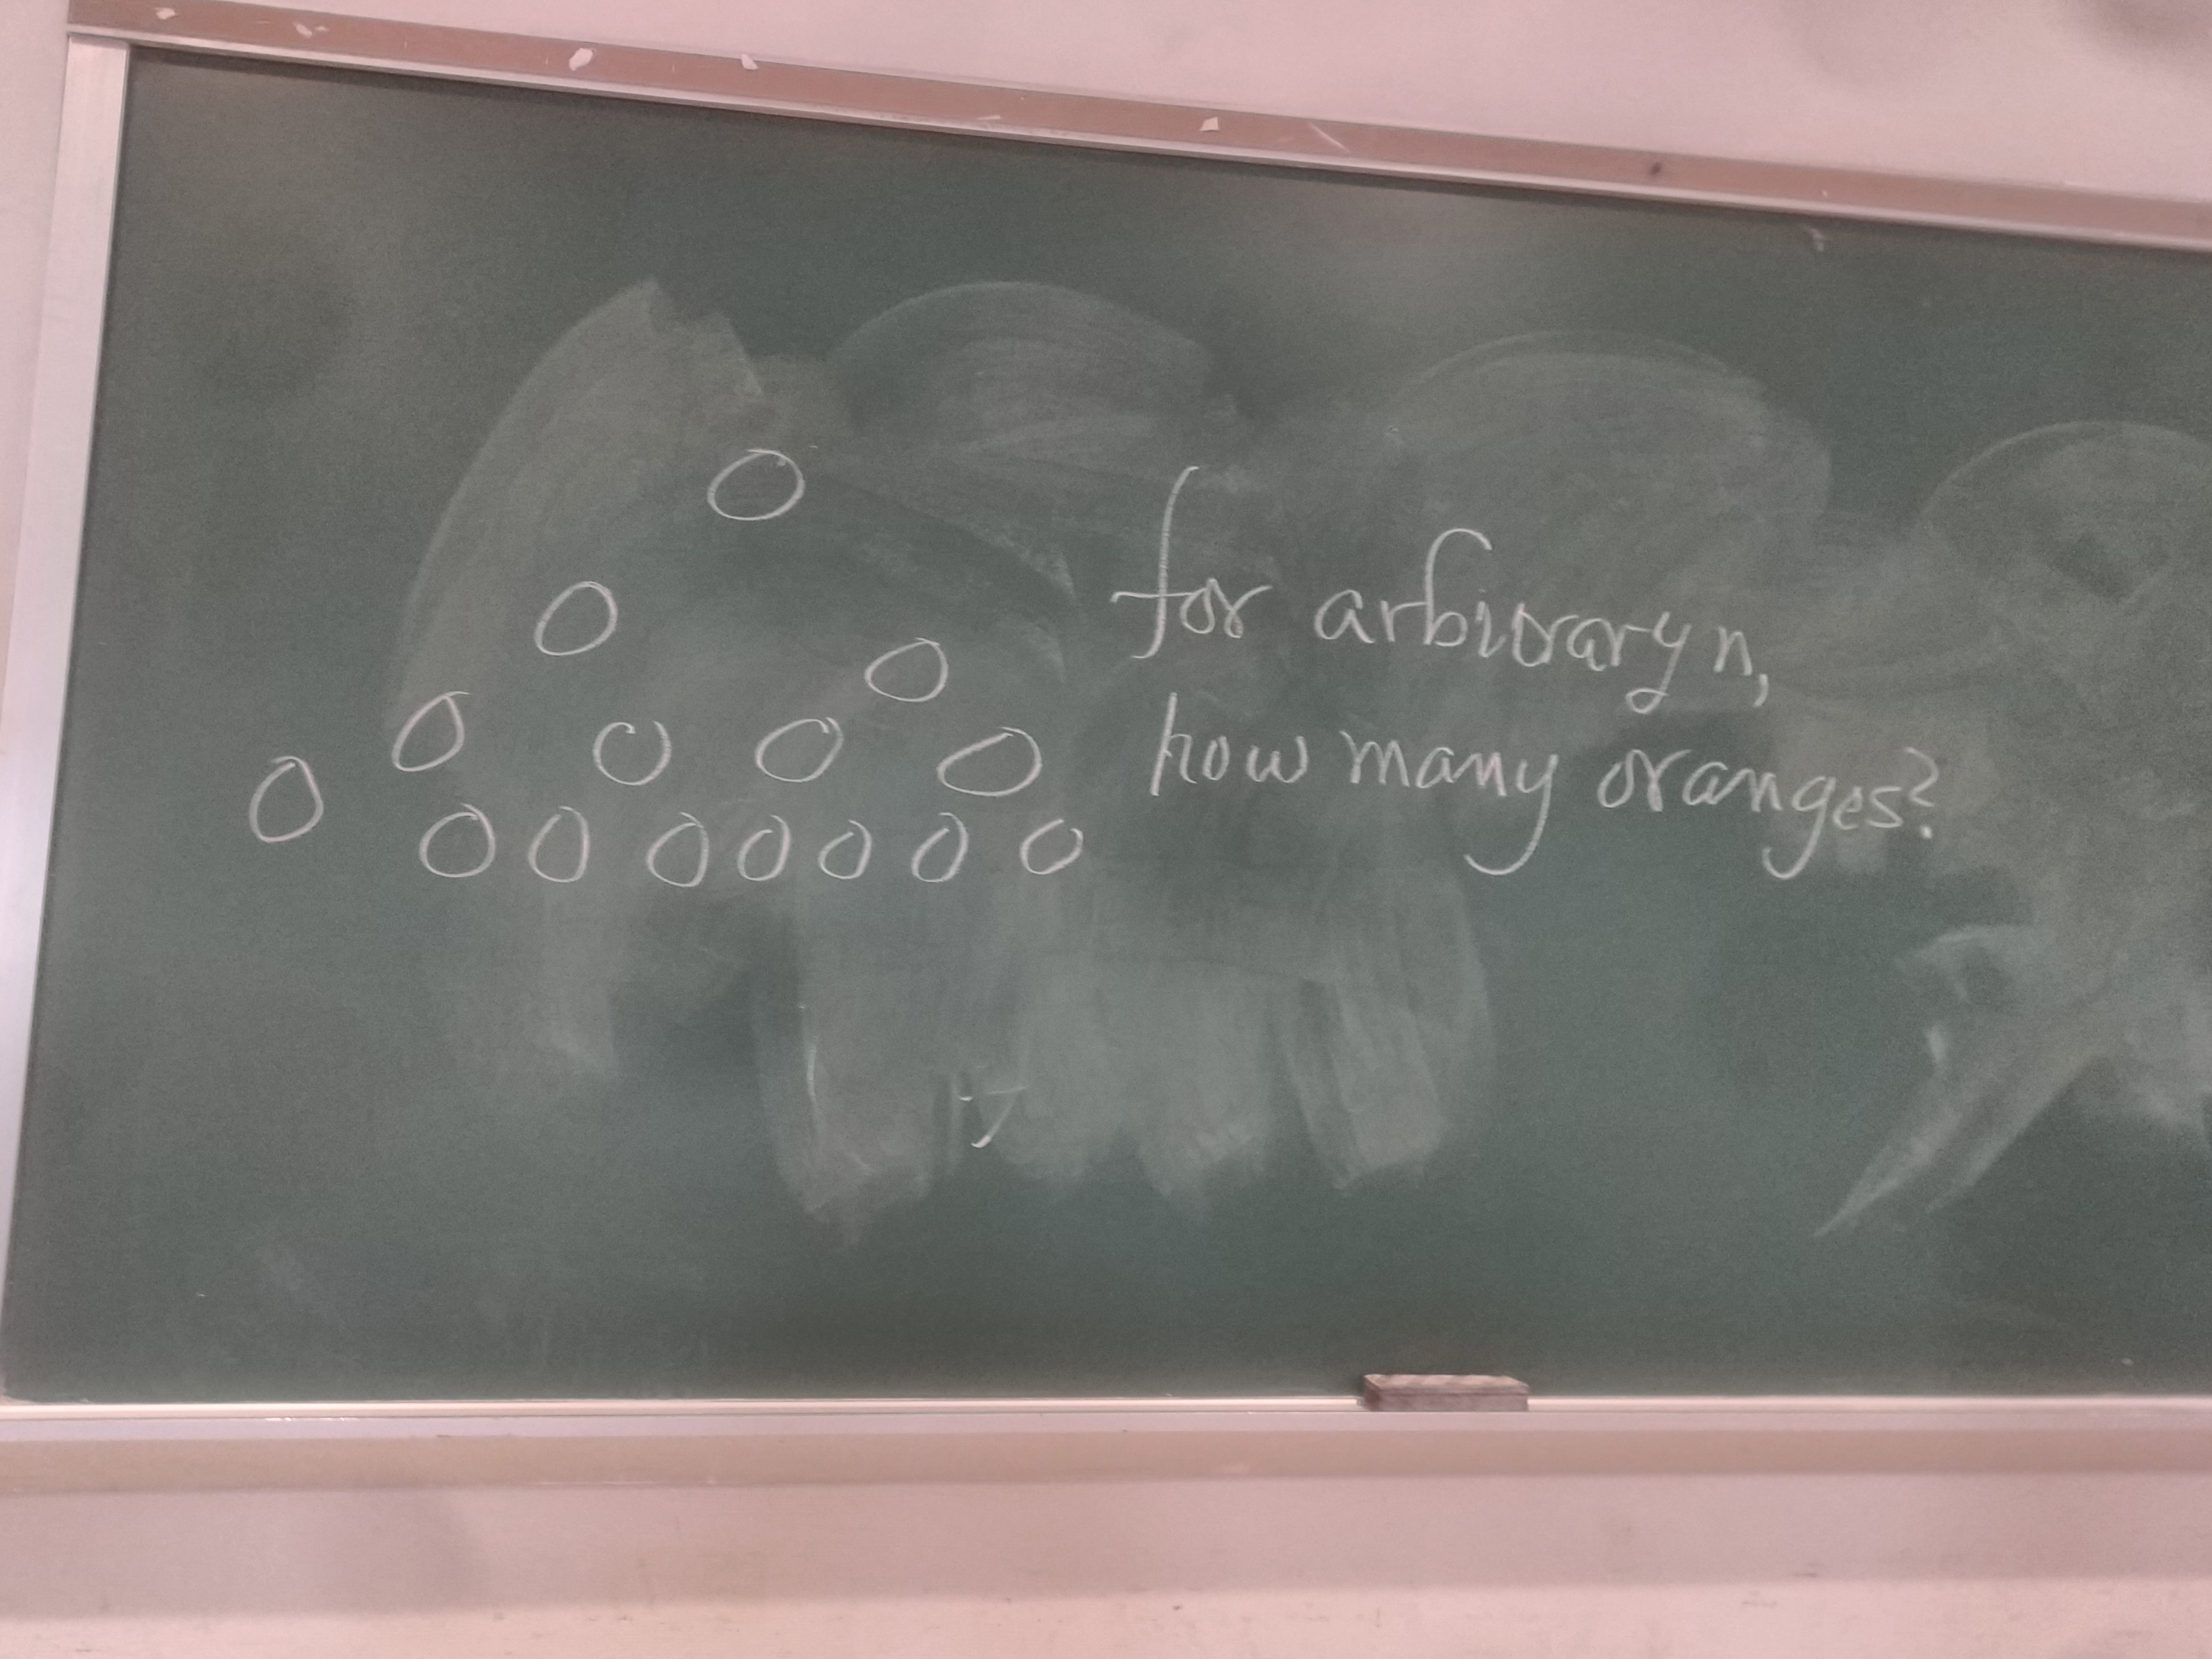 for arbiorary n,
how many oranges?